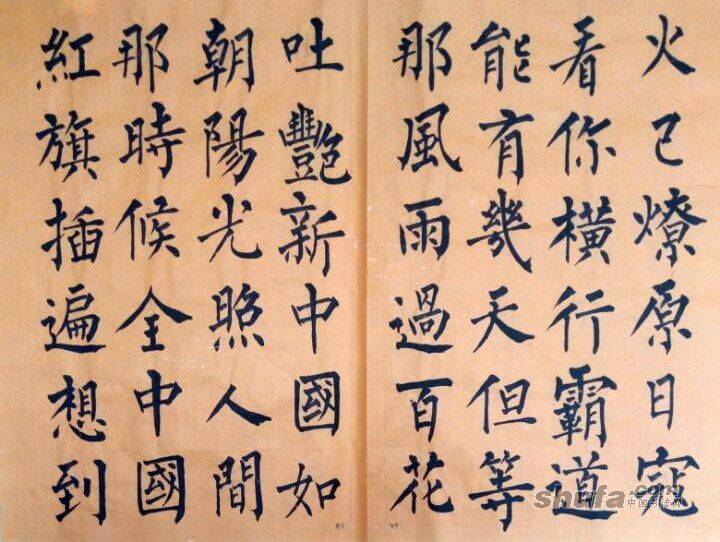 火已燎原日寇
看你橫行霸道
能有幾天但等
那風雨過百花
吐豔新中國如
朝陽光照人間
那時候全中國
紅旗插遍想到
shufa.com
中国书法网